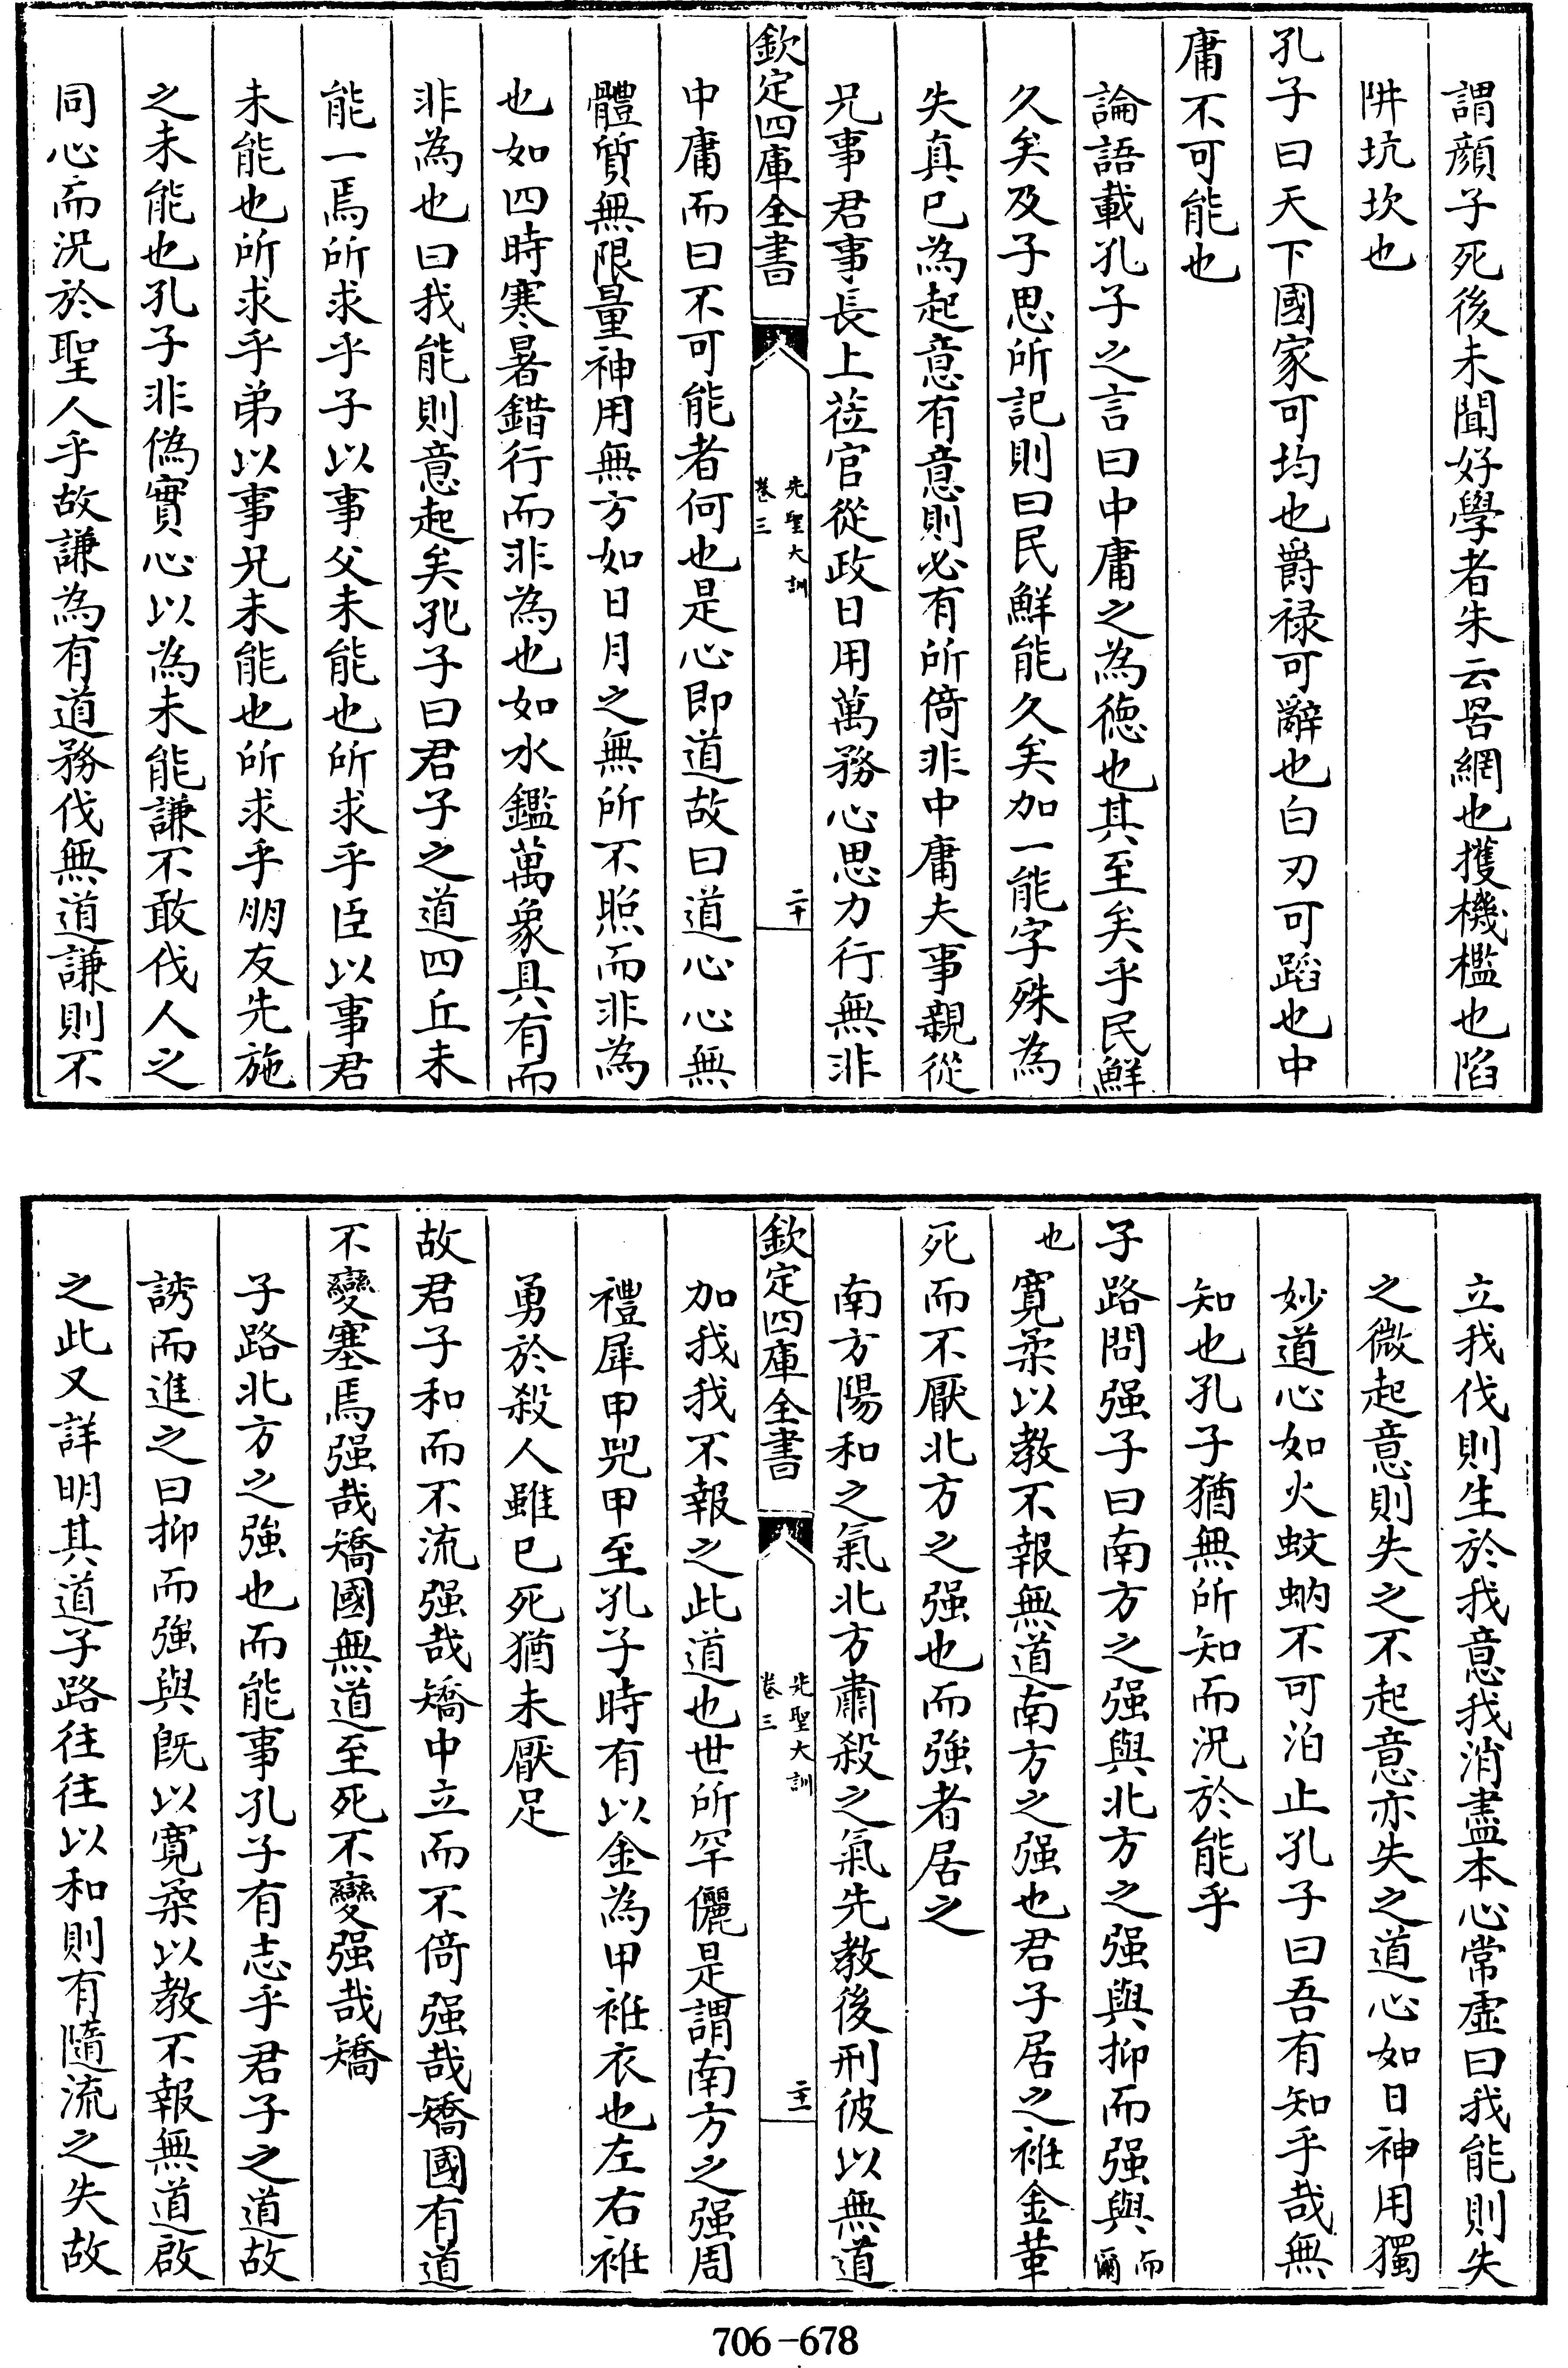 謂顔子死後未聞好學者朱云罟網也擭機檻也陷
阱坑坎也
孔子曰天下國家可均也爵禄可辭也白刃可蹈也中
庸不可能也
論語載孔子之言曰中庸之為徳也其至矣乎民鮮
久矣及子思所記則曰民鮮能久矣加一能字殊為
失真已為起意有意則必有所倚非中庸夫事親從
兄事君事長上莅官從政日用萬務心思力行無非
欽定四庫全書
先聖大訓
卷三
二十
中庸而曰不可能者何也是心即道故曰道心心無
體質無限量神用無方如日月之無所不照而非為
也如四時寒暑錯行而非為也如水鑑萬象具有而
非為也曰我能則意起矣孔子曰君子之道四丘未
能一焉所求乎子以事父未能也所求乎臣以事君
未能也所求乎弟以事兄未能也所求乎朋友先施
之未能也孔子非偽實心以為未能謙不敢伐人之
同心而況於聖人乎故謙為有道務伐無道謙則不
立我伐則生於我意我消盡本心常虛曰我能則失
之微起意則失之不起意亦失之道心如日神用獨
妙道心如火蚊蚋不可泊止孔子曰吾有知乎哉無
知也孔子猶無所知而況於能乎
子路問强子曰南方之强與北方之强與抑而强與而
爾
也寛柔以教不報無道南方之强也君子居之袵金革
死而不厭北方之强也而強者居之
南方陽和之氣北方肅殺之氣先教後刑彼以無道
欽定四庫全書
先聖大訓
卷三
二十一
加我我不報之此道也世所罕儷是謂南方之强周
禮犀甲兕甲至孔子時有以金為甲袵衣也左右袵
勇於殺人雖已死猶未厭足
故君子和而不流强哉矯中立而不倚强哉矯國有道
不變塞焉强哉矯國無道至死不變强哉矯
子路北方之強也而能事孔子有志乎君子之道故
誘而進之曰抑而強與既以寛柔以教不報無道啟
之此又詳明其道子路往往以和則有隨流之失故
706-678